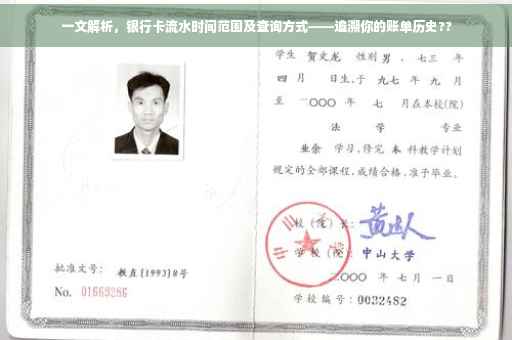 一文解析，银行卡流水时间范围及查询方式——追溯你的账单历史??
学生 贺文龙 性别 男，七三 年
四 月 日生，于 九七 年 九 月
至 二〇〇〇 年 七 月在本校(院)
法 学 专业
业余 学习，修完 本 科教学计划
规定的全部课程，成绩合格，准予毕业。
校（院）长：
学校（院）：中山大学
二〇〇〇 年 七 月 一 日
学校编号：0032482
批准文号：教直[1993]8号
No. 01669286